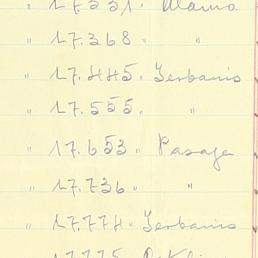 " 17.331. Alamo
" 17.368 " "
" 17.445. Yerbanis
" 17.555. "
" 17.653 " Pasaje
" 17.736 " "
" 17.774 - Yerbanis
17775